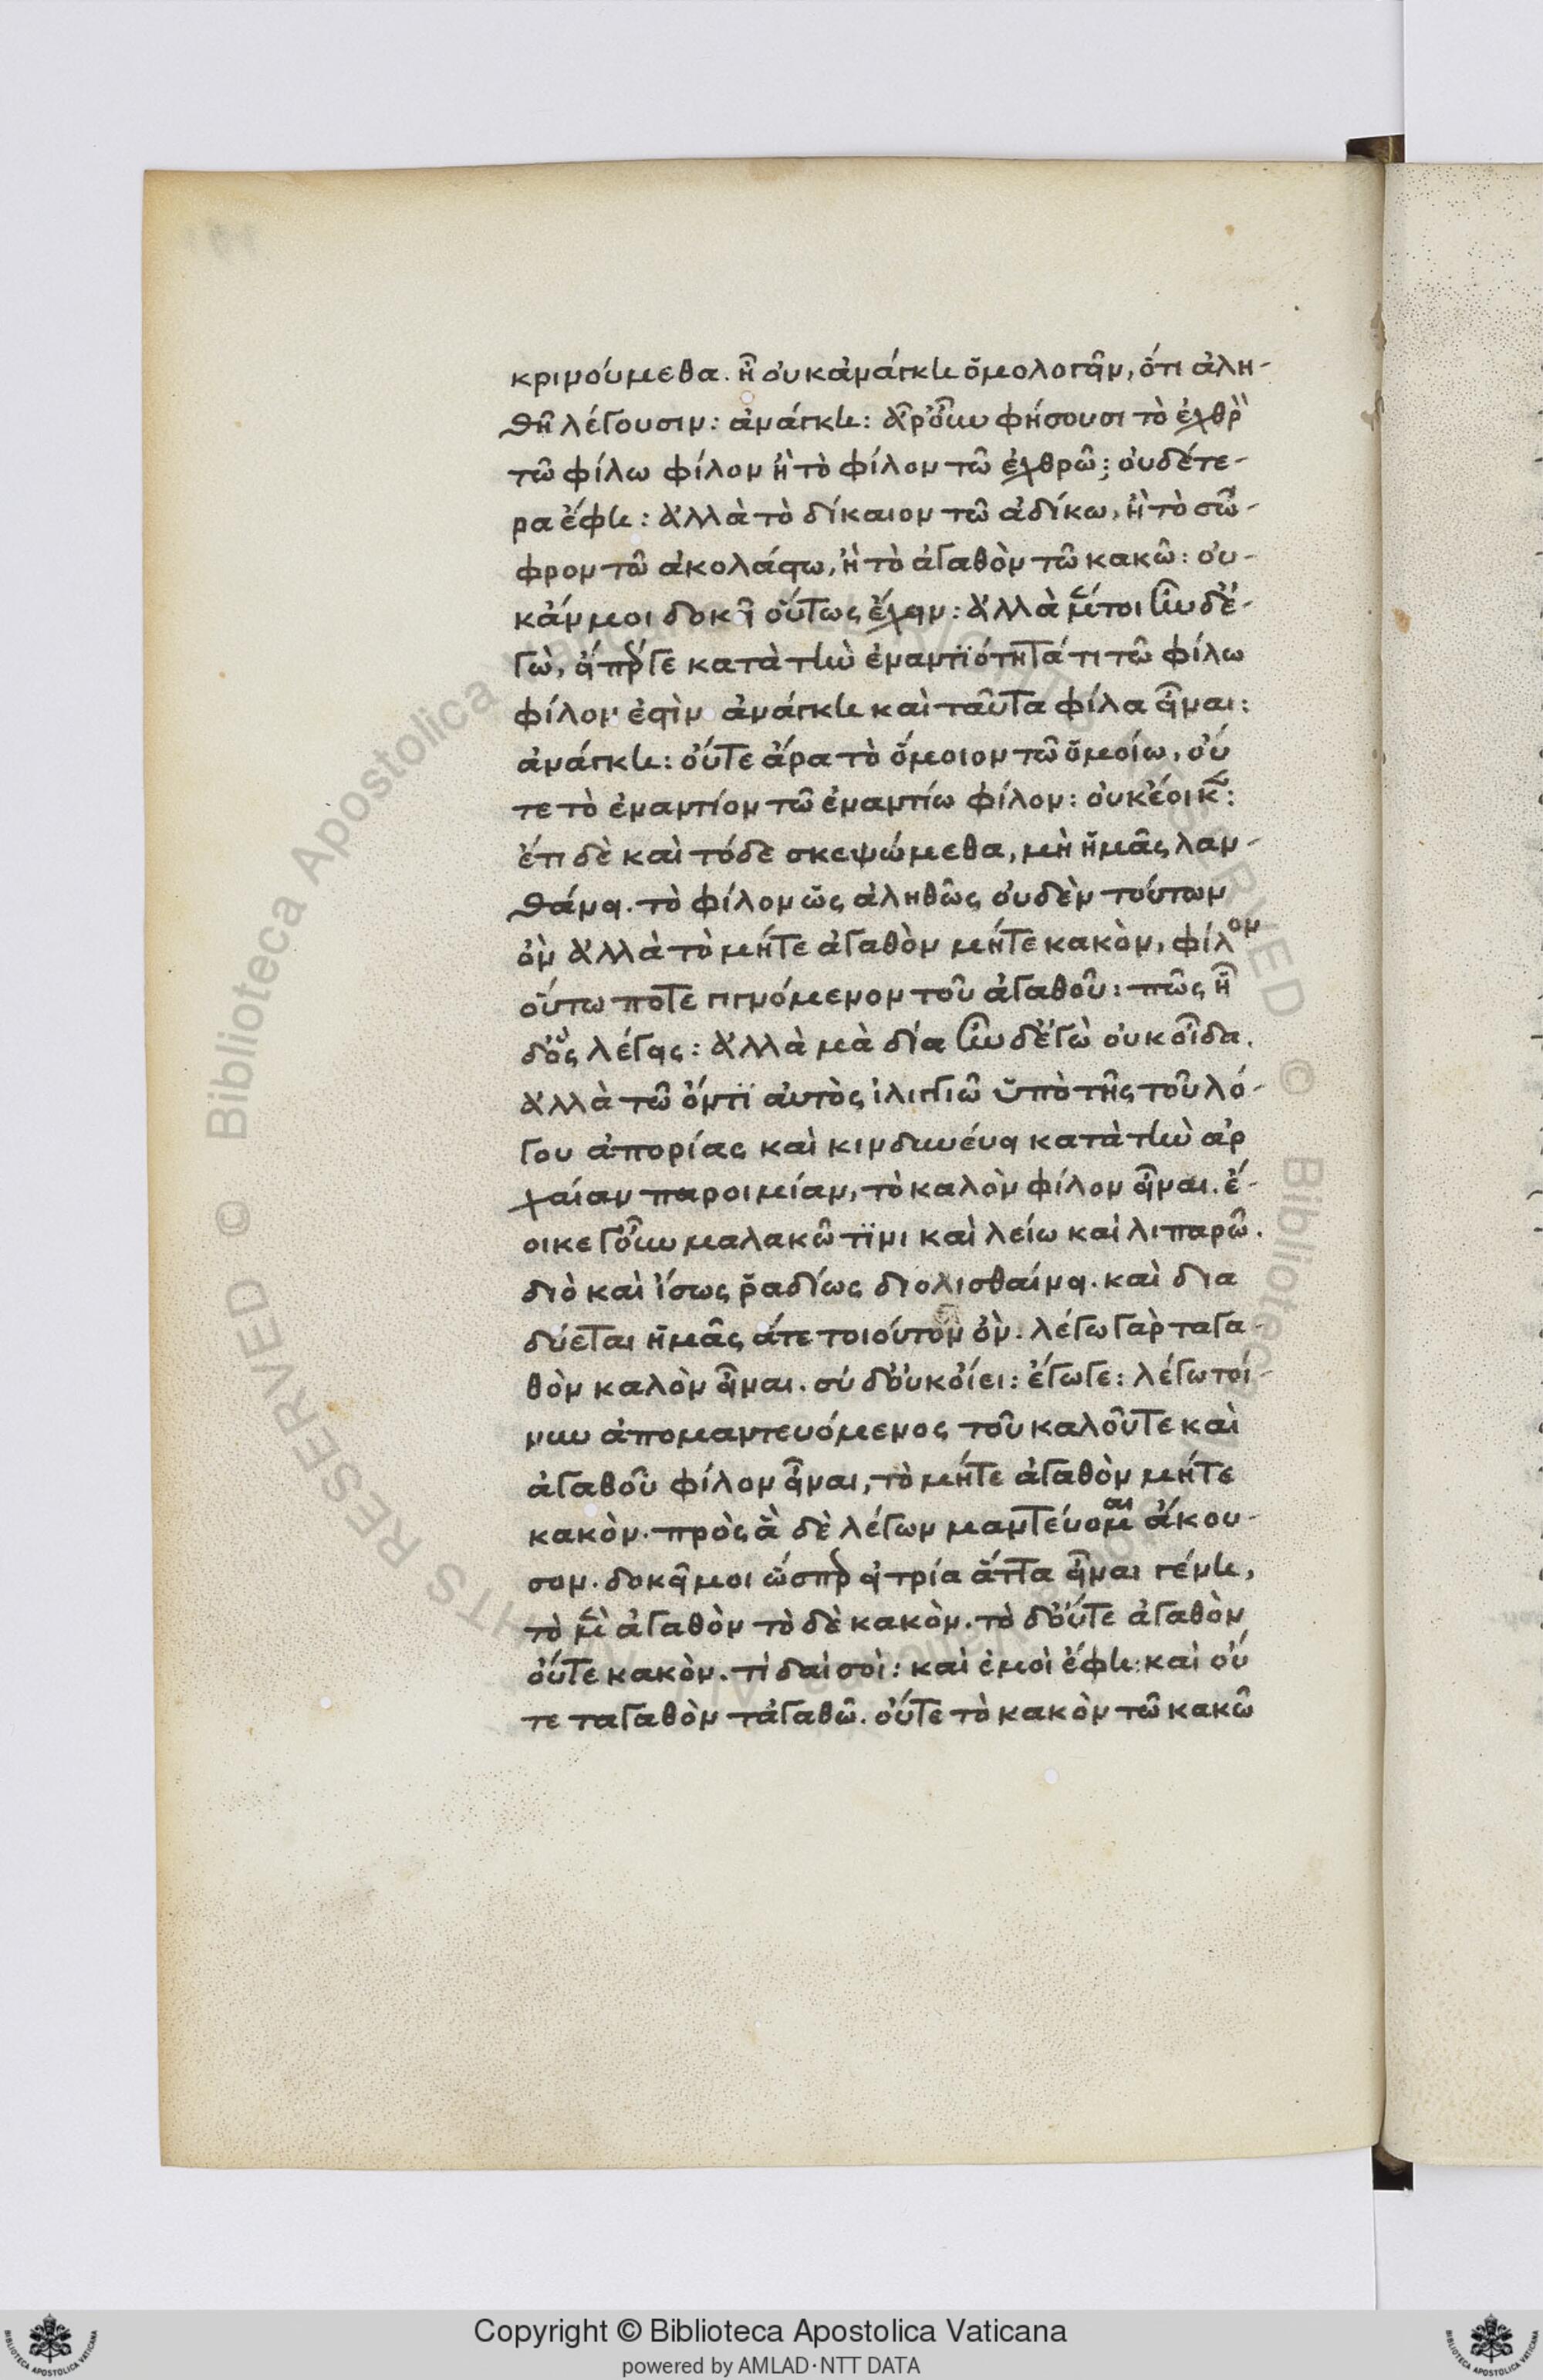 κρινούμεθα. ἢ οὐκ ἀνάγκη ὁμολογεῖν, ὅτι ἀλη-
θῆ λέγουσιν: ἀνάγκη: ἆρ' οὖν φήσουσι τὸ ἐχθρὸν
τῶ φίλω φίλον ἢ τὸ φίλον τῶ ἐχθρῶ; οὐδέτε-
ρα ἔφη: ἀλλὰ τὸ δίκαιον τῶ ἀδίκω, ἢ τὸ σῶ-
φρον τῶ ἀκολάστω, ἢ τὸ ἀγαθὸν τῶ κακῶ: οὐ-
κ ἄν μοι δοκεῖ οὕτως ἔχειν: ἀλλὰ μέντοι ἦν δ' ἐ-
γὼ, εἴπερ γε κατὰ τὴν ἐναντϊότητά τι τῶ φίλω
φίλον ἐστὶν ἀνάγκη καὶ ταῦτα φίλα εἶναι:
ἀνάγκη: οὔτε ἄρα τὸ ὅμοιον τῶ ὁμοίω, οὔ
τε τὸ ἐναντίον τῶ ἐναντίω φίλον: οὐκ ἔοικεν:
ἔτι δὲ καὶ τόδε σκεψώμεθα, μὴ ἡμᾶς λαν-
θάνει. τὸ φίλον ὡς ἀληθῶς οὐδὲν τούτων
ὂν ἀλλὰ τὸ μήτε ἀγαθὸν μήτε κακὸν, φίλον
οὕτω ποτὲ γιγνόμενον τοῦ ἀγαθοῦ: πῶς ἦ
δ' ὃς λέγεις: ἀλλὰ μὰ δία ἦν δ' ἐγὼ οὐκ οἶδα.
ἀλλὰ τῶ ὄντϊ αὐτὸς ἰλιγγιῶ ὑπὸ τῆς τοῦ λό-
γου ἀπορίας καὶ κινδυνεύει κατὰ τὴν ἀρ
χαίαν παροιμίαν, τὸ καλὸν φίλον εἶναι. ἔ-
οικε γοῦν μαλακῶ τϊνι καὶ λείω καὶ λιπαρῶ.
διὸ καὶ ἴσως ῥαδίως διολισθαίνει. καὶ δια
δύεται ἡμᾶς ἅτε τοιοῦτον ὄν. λέγω γὰρ ταγα-
θὸν καλὸν εἶναι. σὺ δ' οὐκ οἴει: ἔγωγε: λέγω τοί-
νυν ἀπομαντευόμενος τοῦ καλοῦ τε καὶ
ἀγαθοῦ φίλον εἶναι, τὸ μήτε ἀγαθὸν μήτε
κακὸν. πρὸς ἃ δὲ λέγων μαντεύομαι ἄκου-
σον. δοκεῖ μοι ὥσπερ εἰ τρία ἄττα εἶναι γένη,
τὸ μὲν ἀγαθὸν τὸ δὲ κακὸν. τὸ δ' οὔτε ἀγαθὸν
οὔτε κακὸν. τί δαὶ σοὶ: καὶ ἐμοὶ ἔφη: καὶ οὔ
τε ταγαθὸν τἀγαθῶ. οὔτε τὸ κακὸν τῶ κακῶ
© Biblioteca Apostolica Vaticana
Copyright © Biblioteca Apostolica Vaticana
powered by AMLAD·NTT DATA